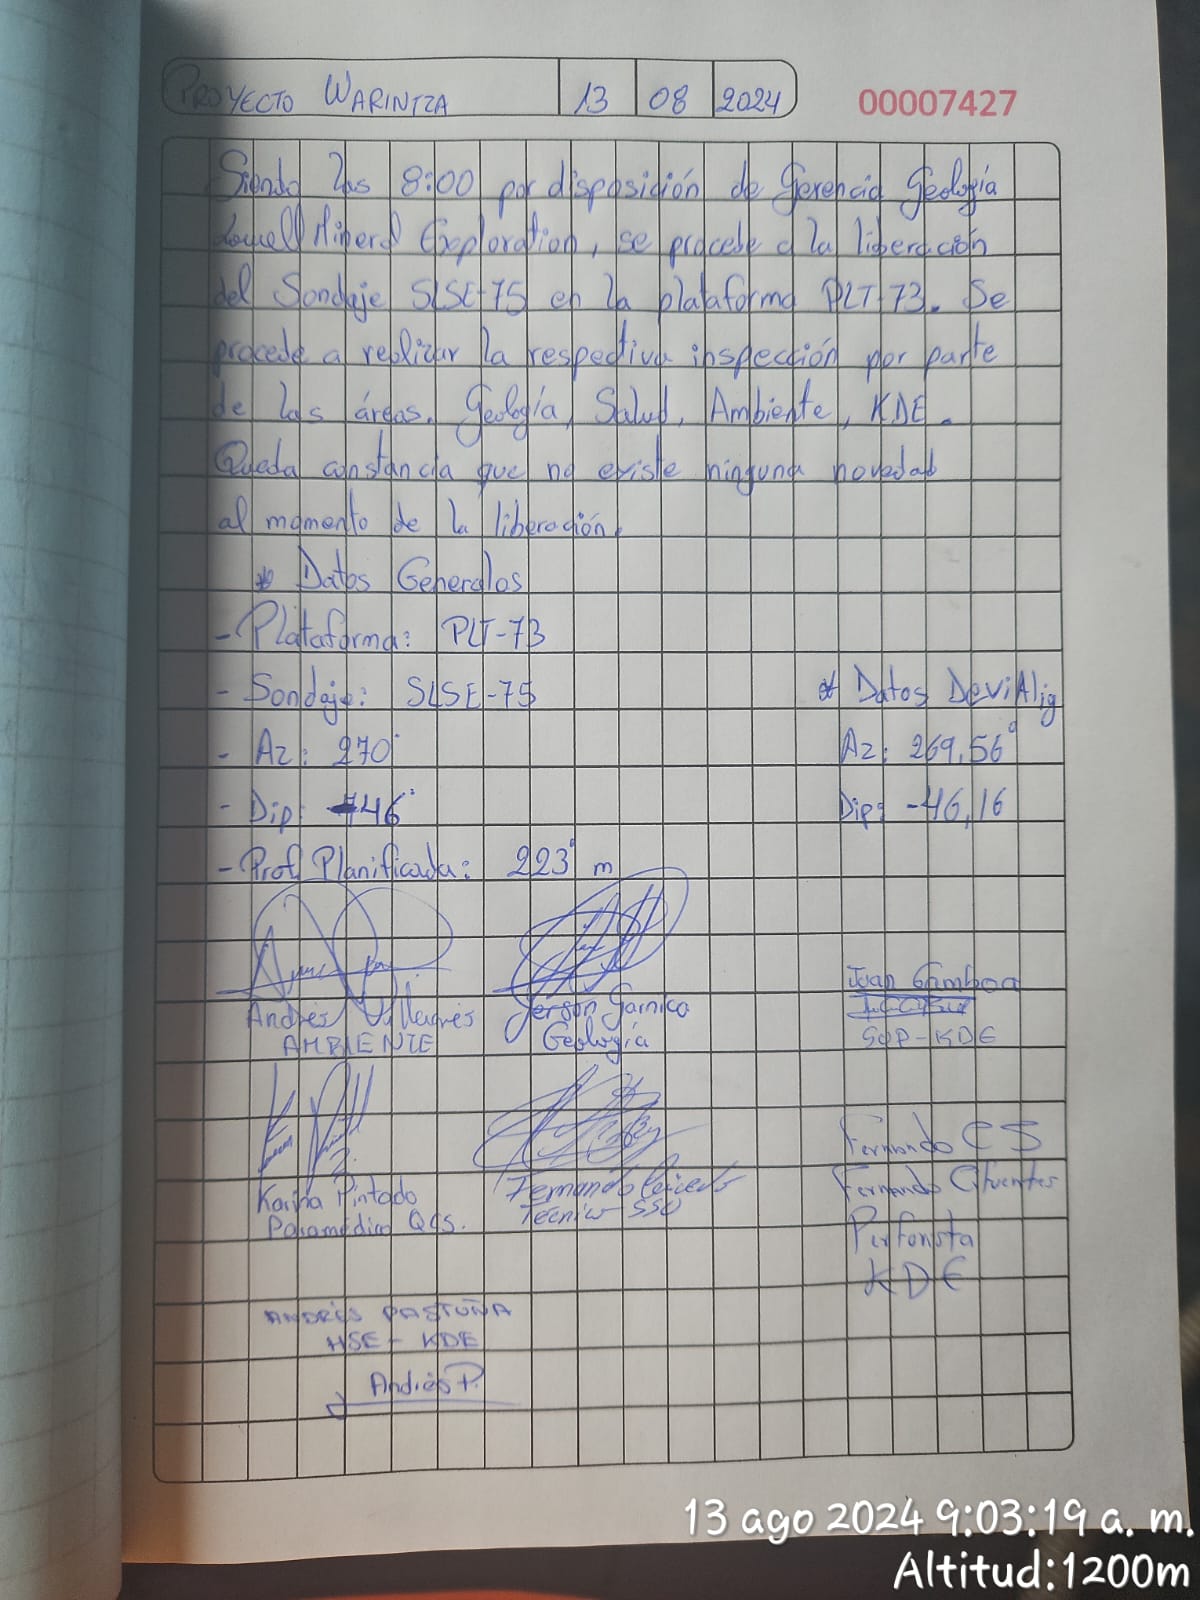 PROYECTO WARINTZA 13 08 2024 00007427
Siendo las 8:00 por disposición de Gerencia Geología
Lowell Mineral Exploration, se procede a la liberación
del Sondaje SLSE-75 en la plataforma PLT-73. Se
procede a realizar la respectiva inspección por parte
de las áreas. Geología, Salud, Ambiente, KDE.
Queda constancia que no existe ninguna novedad
al momento de la liberación.
* Datos Generales
- Plataforma: PLT-73
- Sondaje: SLSE-75
* Datos DeviAlig
- Az: 270°
Az: 269,56°
- Dip: -46°
Dip: -46,16
- Prof. Planificada: 223 m
Andres Villagres
AMBIENTE
Jerson Garnica
Geología
Juan Gamboa
SUP-KDE
Karina Pintado
Paramédico QCS.
Fernando
Técnico SSO
Fernando CS
Fernando Cifuentes
Perforista
KDE
ANDRÉS PASTUÑA
HSE - KDE
Andrés P.
13 ago 2024 9:03:19 a. m.
Altitud:1200m